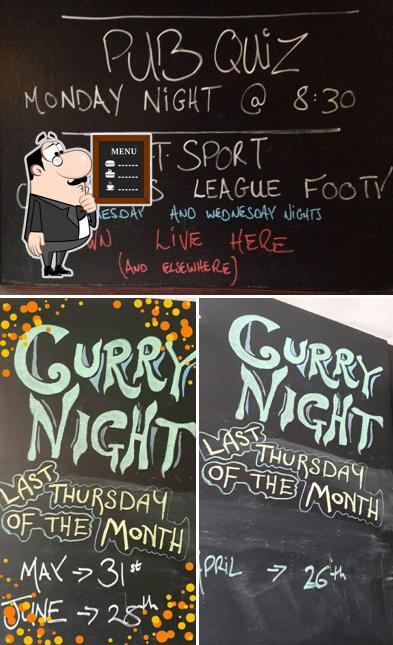 PUB QUIZ
MONDAY NIGHT @ 8:30
MENU
SPORT
LEAGUE FOOTY
AND WEDNESDAY NIGHTS
LIVE HERE
(AND ELSEWHERE)
CURRY
NIGHT
LAST
THURSDAY
OF THE MONTH
MAY → 31st
JUNE → 28th
CURRY
NIGHT
LAST
THURSDAY
OF THE MONTH
APRIL → 26th